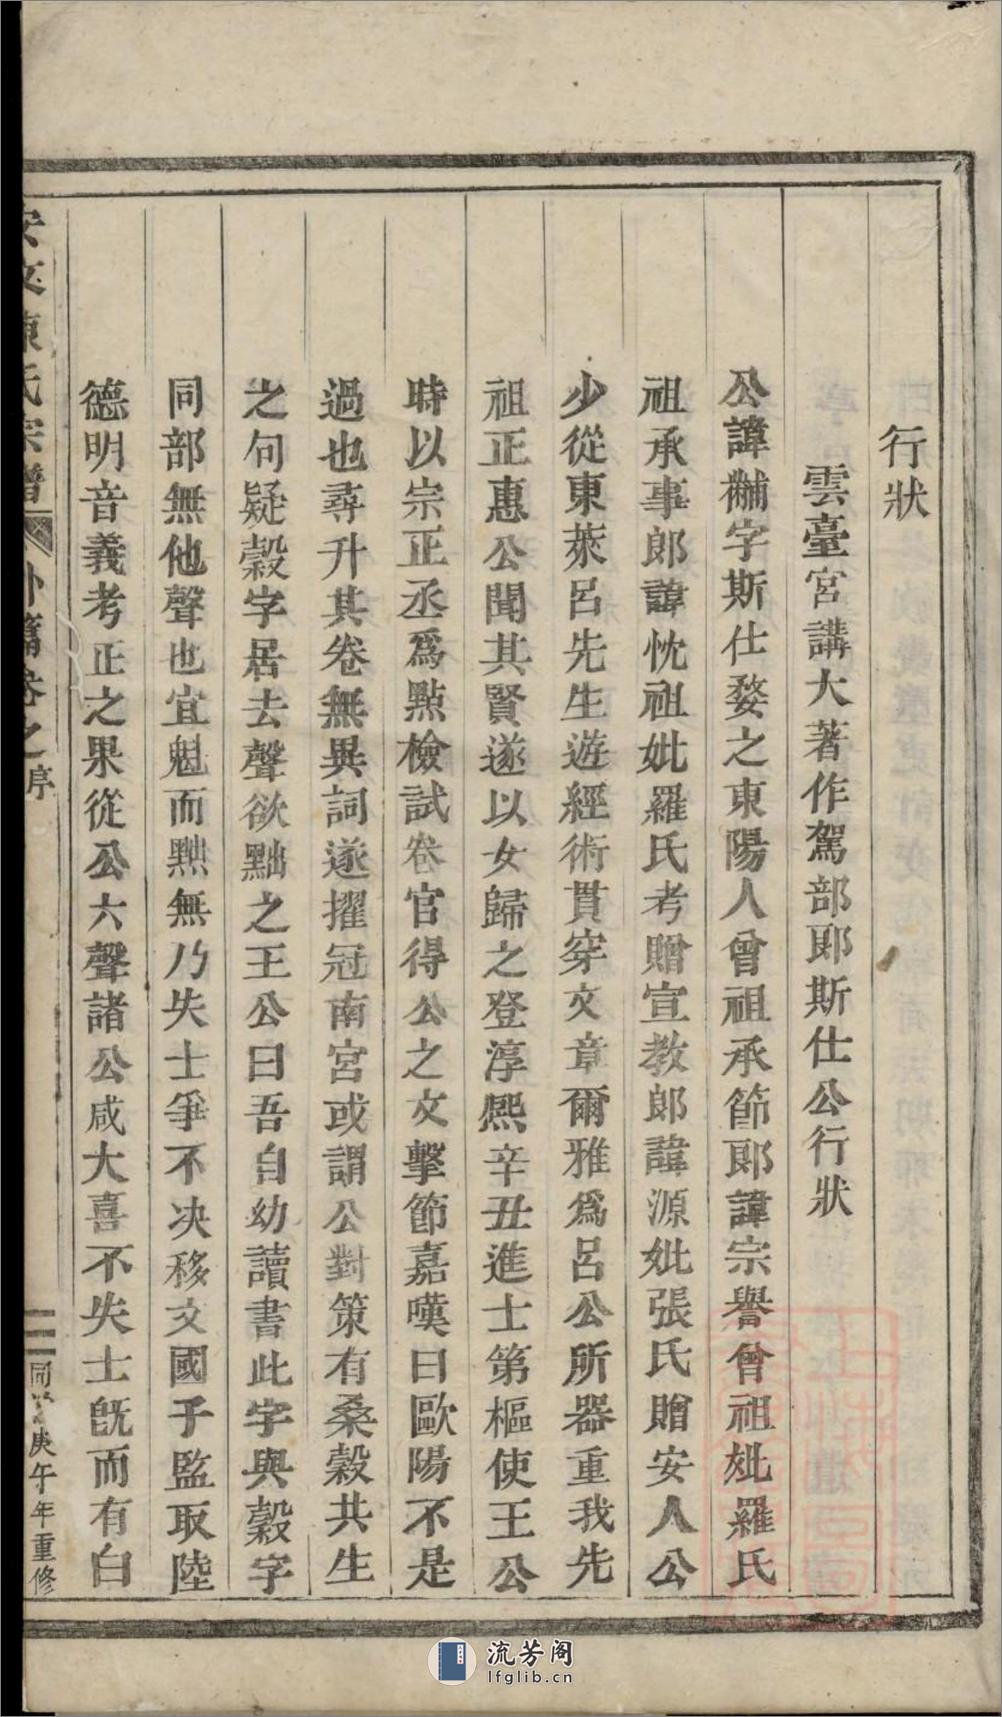 行狀
雲臺宮講大著作駕部郎斯仕公行狀
公諱黼字斯仕婺之東陽人曾祖承節郎諱宗譽曾祖妣羅氏
祖承事郎諱忱祖妣羅氏考贈宣教郎諱源妣張氏贈安人公
少從東萊呂先生遊經術貫穿文章爾雅爲呂公所器重我先
祖正惠公聞其賢遂以女歸之登淳熙辛丑進士第樞使王公
時以宗正丞爲點檢試卷官得公之文擊節嘉嘆曰歐陽不是
過也尋升其卷無異詞遂擢冠南宮或謂公對策有桑穀共生
之句疑穀字居去聲欲黜之王公曰吾自幼讀書此字與穀字
同部無他聲也宜魁而黜無乃失士爭不决移文國子監取陸
德明音義考正之果從公六聲諸公咸大喜不失士旣而有白
陳氏宗譜
外篇卷之序
二
同治庚午年重修
流芳阁
lfglib.cn